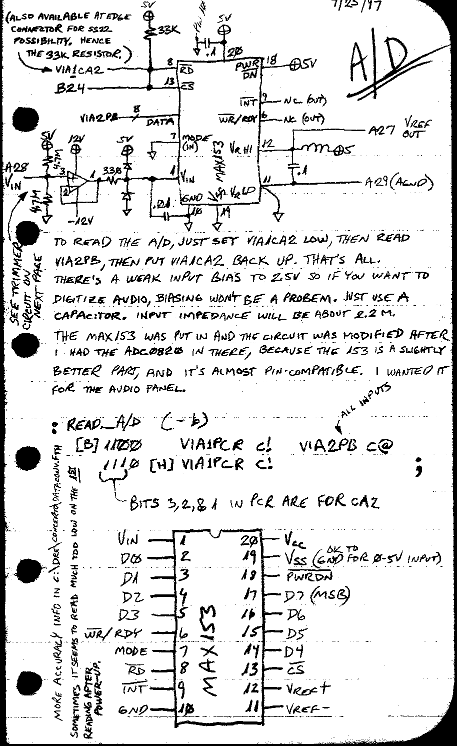 7/25/97
(ALSO AVAILABLE AT EDGE
CONNECTOR FOR SS22
POSSIBILITY, HENCE
THE 33K RESISTOR.)
5V
33K
5V
.1
20
A/D
VIA1CA2
8
RD
PWR
DN
18
5V
B24
13
CS
INT
9
NC (OUT)
VIA2PB
8
DATA
WR/RDY
6
NC (OUT)
7
MODE
(IN)
MAX153
VR HI
12
A27 VREF
OUT
5
.1
A28
VIN
4.7M
4.7M
12V
3
2
1
-12V
330
5V
1
VIN
GND
10
19
VR LO
11
A29 (AGND)
SEE TRIMMER
CIRCUIT ON
NEXT PAGE
TO READ THE A/D, JUST SET VIA1CA2 LOW, THEN READ
VIA2PB, THEN PUT VIA1CA2 BACK UP. THAT'S ALL.
THERE'S A WEAK INPUT BIAS TO 2.5V SO IF YOU WANT TO
DIGITIZE AUDIO, BIASING WON'T BE A PROBEM. JUST USE A
CAPACITOR. INPUT IMPEDANCE WILL BE ABOUT 2.2M.
THE MAX153 WAS PUT IN AND THE CIRCUIT WAS MODIFIED AFTER
I HAD THE ADC0820 IN THERE, BECAUSE THE 153 IS A SLIGHTLY
BETTER PART, AND IT'S ALMOST PIN-COMPATIBLE. I WANTED IT
FOR THE AUDIO PANEL.
: READ_A/D (-b)
ALL INPUTS
[B] 1100 VIA1PCR C! VIA2PB C@
1110 [H] VIA1PCR C! ;
BITS 3,2,&1 IN PCR ARE FOR CA2
MORE ACCURACY INFO IN
SOMETIMES IT SEEMS TO READ MUCH TOO LOW ON THE 1ST
READING AFTER
POWER-UP.
MAX153
VIN 1 20 VCC
D0 2 19 VSS (OK TO GND FOR 0-5V INPUT)
D1 3 18 PWRDN
D2 4 17 D7 (MSB)
D3 5 16 D6
WR/RDY 6 15 D5
MODE 7 14 D4
RD 8 13 CS
INT 9 12 VREF+
GND 10 11 VREF-